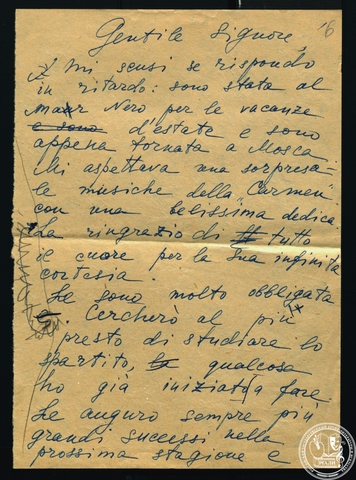 16
Gentile Signore,
Mi scusi se rispondo
in ritardo: sono stata al
Mar Nero per le vacanze
e sono d'estate e sono
appena tornata a Mosca.
Mi aspettava una sorpresa –
le musiche della "Carmen"
con una belissima dedica.
La ringrazio di tutto
il cuore per la Sua infinita
cortesia.
Le sono molto obbligata
Cercherò al più
presto di studiare lo
spartito, qualcosa
ho già iniziato a fare.
Le auguro sempre più
grandi successi nella
prossima stagione e